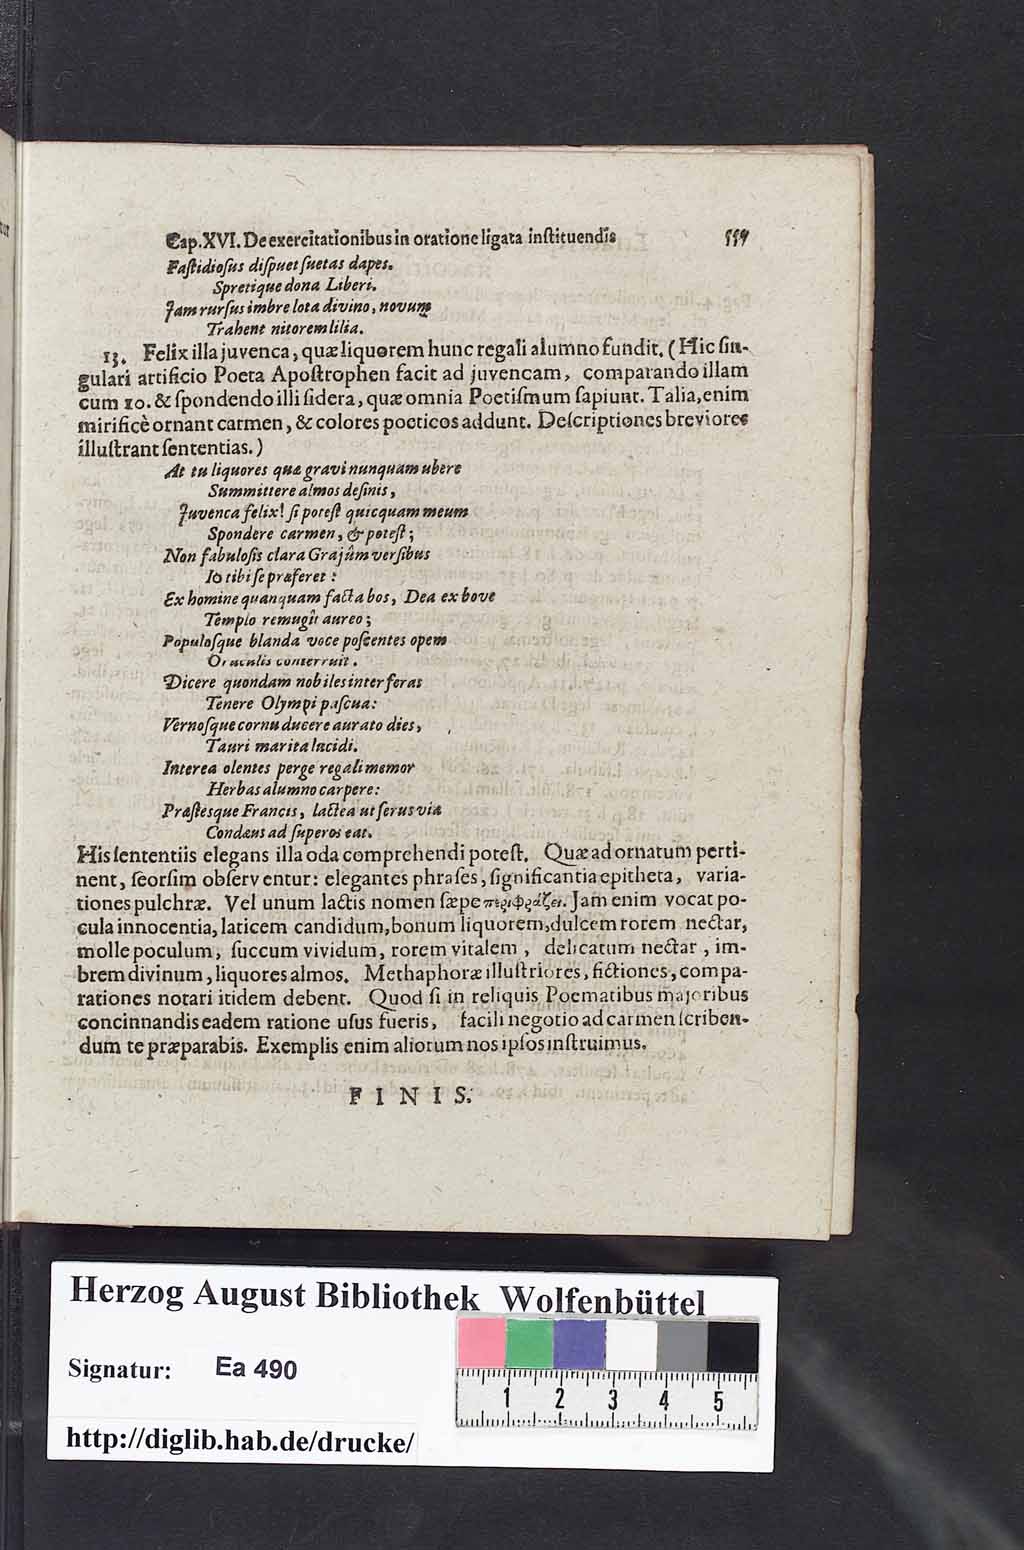 Cap. XVI. De exercitationibus in oratione ligata instituendis 559
Fastidiosus dispuet suetas dapes.
Spretique dona Liberi.
Jam rursus imbre lota divino, novum
Trahent nitorem lilia.
13. Felix illa juvenca, quæ liquorem hunc regali alumno fundit. (Hic sin-
gulari artificio Poeta Apostrophen facit ad juvencam, comparando illam
cum 10. & spondendo illi sidera, quæ omnia Poetismum sapiunt. Talia, enim
mirificè ornant carmen, & colores poeticos addunt. Descriptiones breviores
illustrant sententias.)
At tu liquores quæ gravi nunquam ubere
Summittere almos desinis,
Juvenca felix! si potest quicquam meum
Spondere carmen, & potest;
Non fabulosis clara Grajûm versibus
Iō tibi se præferet:
Ex homine quanquam facta bos, Dea ex bove
Templo remugît aureo;
Populosque blanda voce poscentes opem
Oraculis conterruit.
Dicere quondam nobiles inter feras
Tenere Olympi pascua:
Vernosque cornu ducere aurato dies,
Tauri marita lucidi.
Interea olentes perge regali memor
Herbas alumno carpere:
Præstesque Francis, lactea ut serus via
Condæus ad superos eat.
His sententiis elegans illa oda comprehendi potest. Quæ ad ornatum perti-
nent, seorsim observentur: elegantes phrases, significantia epitheta, varia-
tiones pulchræ. Vel unum lactis nomen sæpe περιφράζει. Jam enim vocat po-
cula innocentia, laticem candidum, bonum liquorem, dulcem rorem nectar,
molle poculum, succum vividum, rorem vitalem, delicatum nectar, im-
brem divinum, liquores almos. Methaphoræ illustriores, fictiones, compa-
rationes notari itidem debent. Quod si in reliquis Poematibus majoribus
concinnandis eadem ratione usus fueris, facili negotio ad carmen scriben-
dum te præparabis. Exemplis enim aliorum nos ipsos instruimus.
FINIS.
Herzog August Bibliothek Wolfenbüttel
Signatur: Ea 490
1 2 3 4 5
http://diglib.hab.de/drucke/